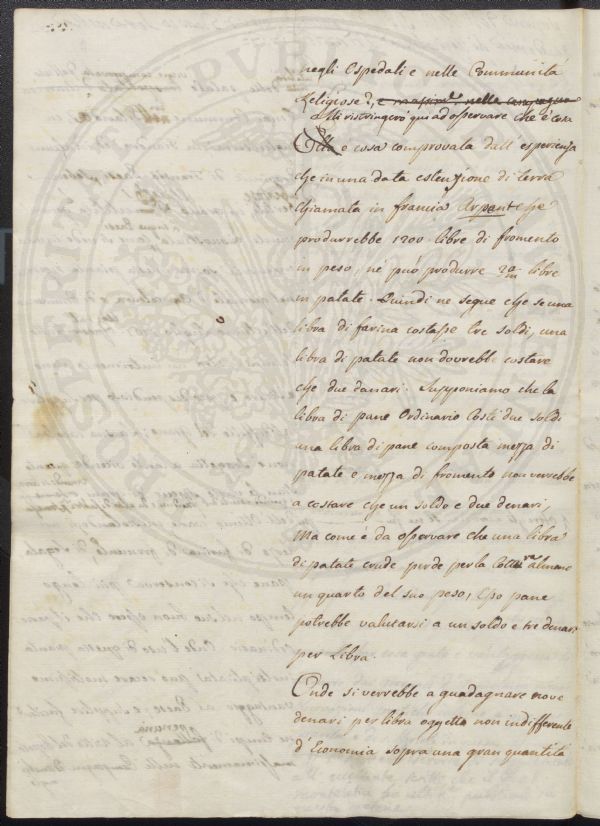 negli Ospedali e nelle Communità
Religiose?, e massime nella campagna
Mi ristringerò qui ad osservare che è cosa
Ella e cosa comprovata dall' esperienza
che in una data estenzione di terra
chiamata in francia Arpent che
produrrebbe 1200 libre di fromento
in peso, né può produrre 20m libre
in patate. Quindi ne segue che se una
libra di farina costasse tre soldi, una
libra di patate non dovrebbe costare
che due danari. Supponiamo che la
libra di pane Ordinario Costi due soldi
una libra di pane composta mezza di
patate e mezza di fromento non verrebbe
a costare che un soldo e due denari,
Ma come è da osservare che una libra
di patate crude perde per la Cottura almeno
un quarto del suo peso, Esso pane
potrebbe valutarsi a un soldo e tre denari
per Libra.
Onde si verrebbe a guadagnare nove
denari per libra oggetto non indifferente
d' Economia sopra una gran quantità